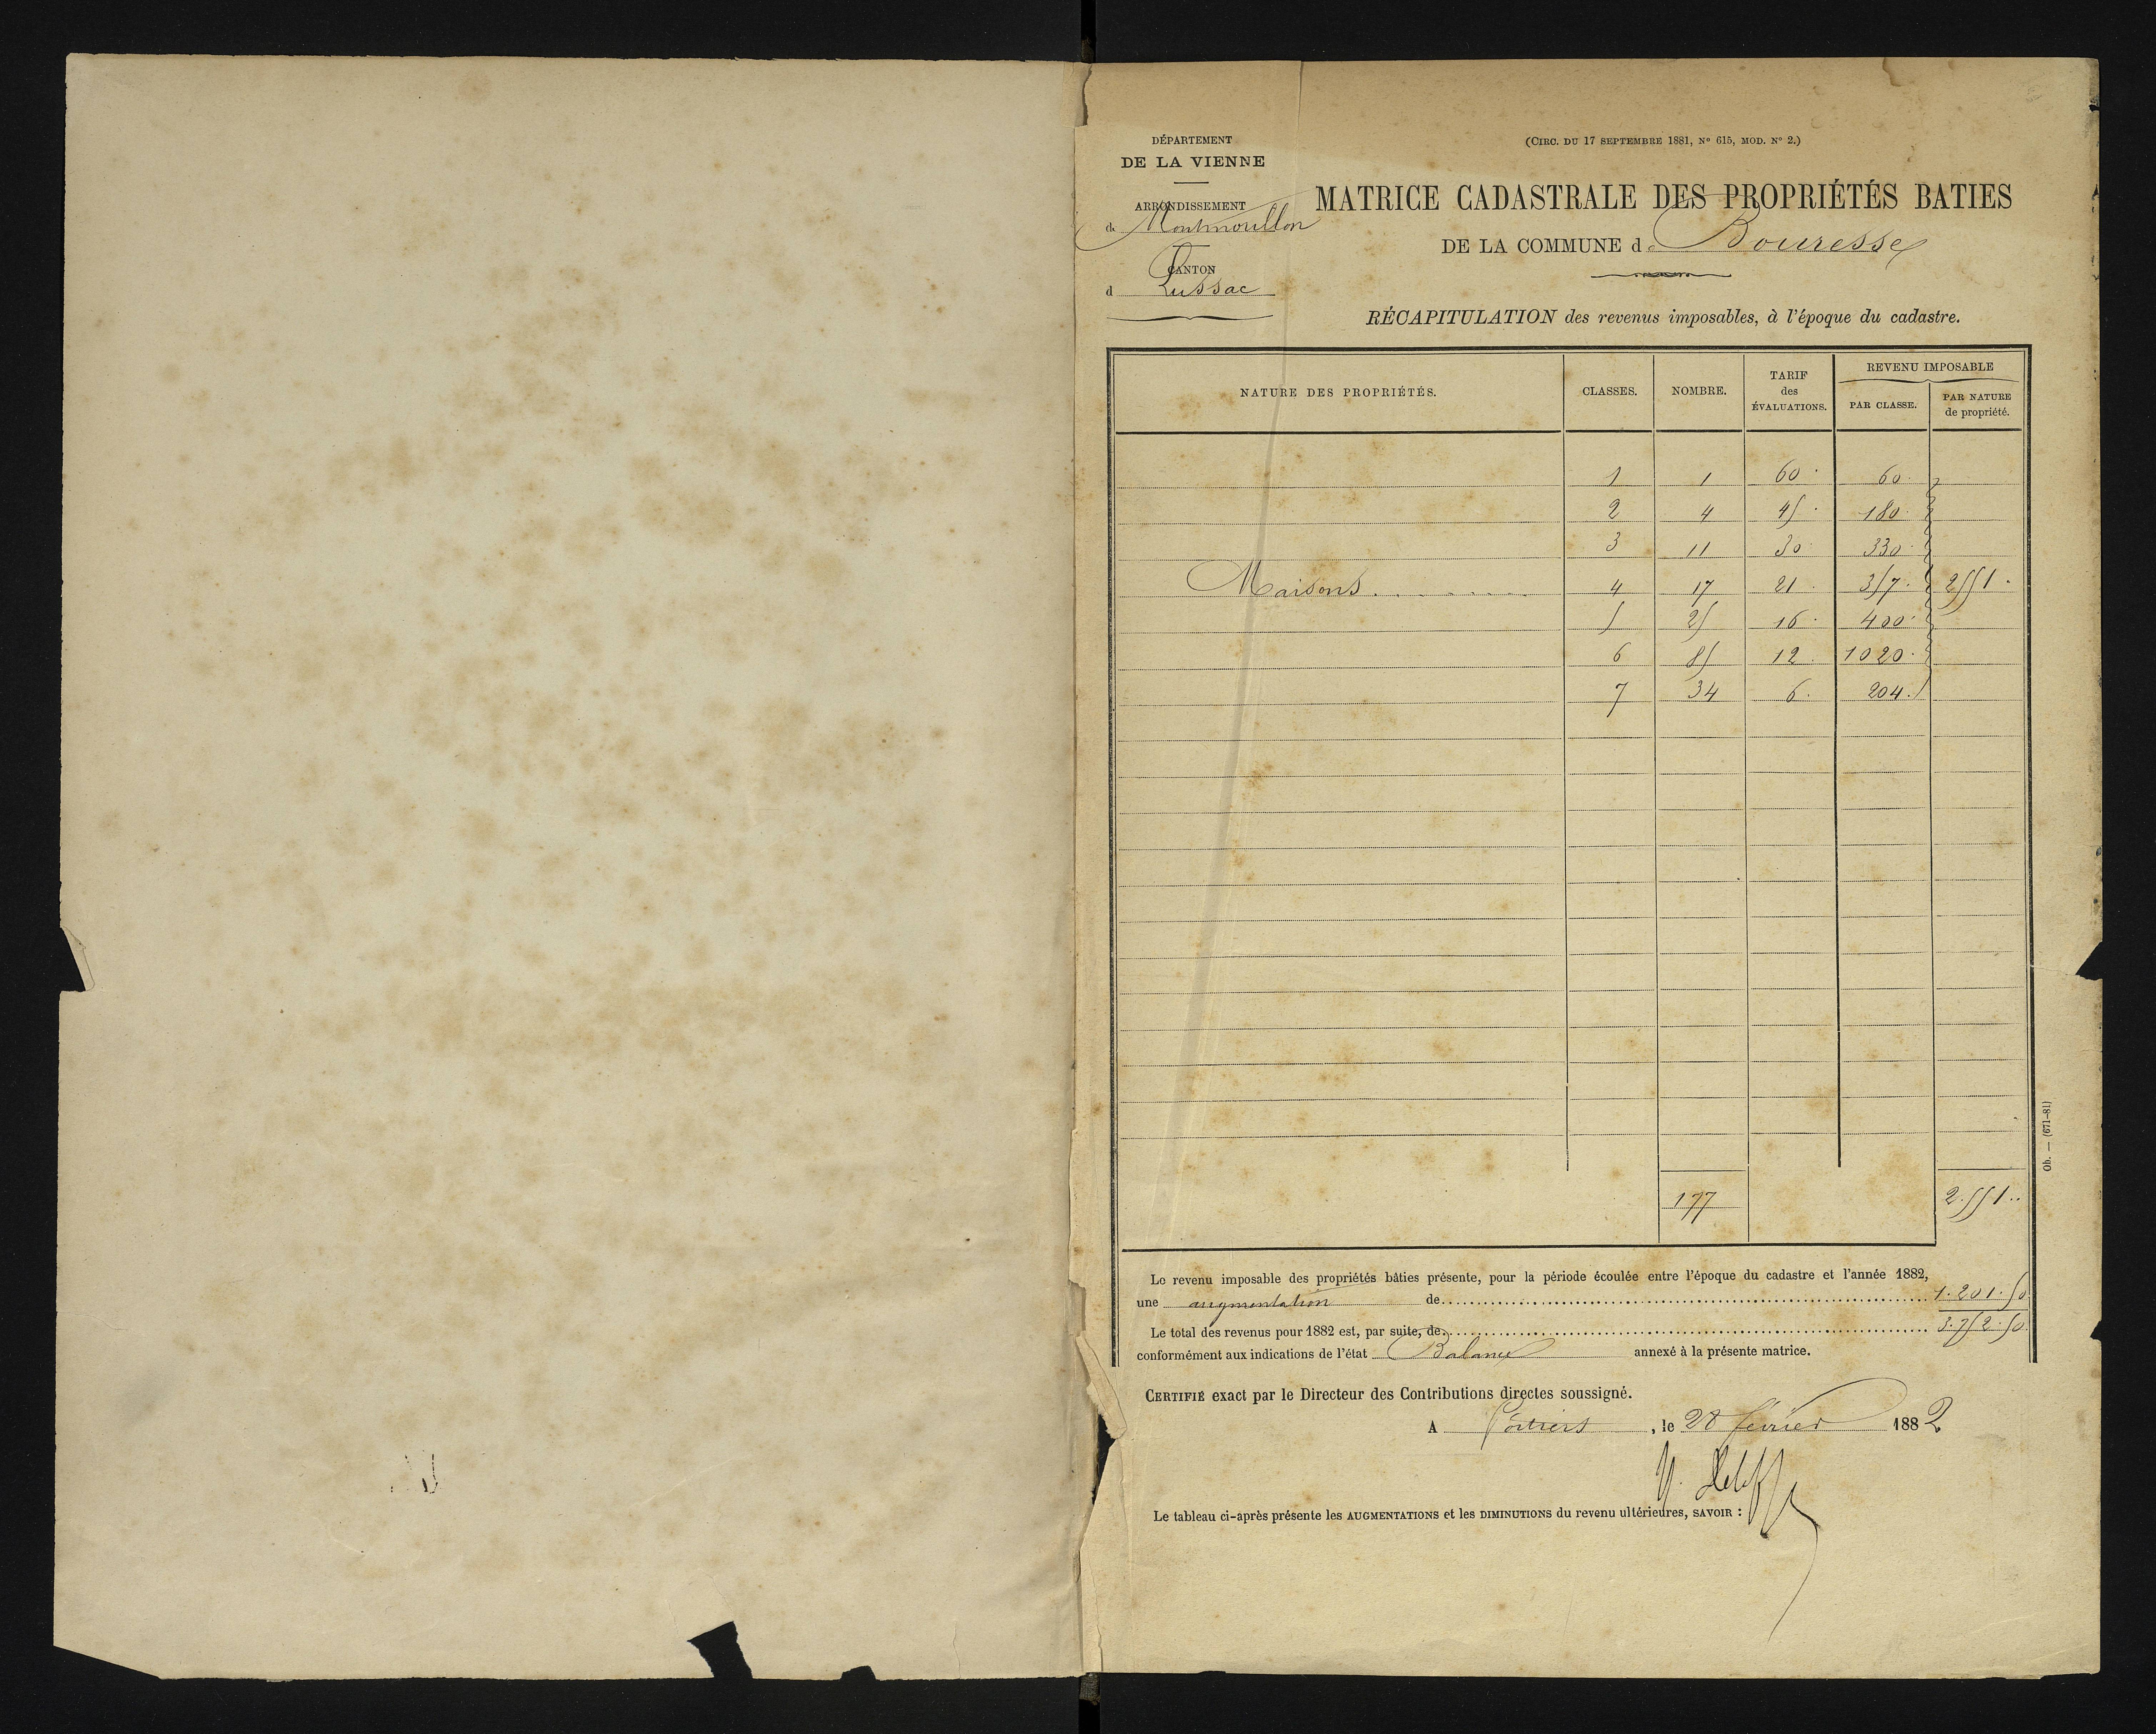 DÉPARTEMENT
DE LA VIENNE
ARRONDISSEMENT
de Montmorillon
CANTON
d Lussac
(CIRC. DU 17 SEPTEMBRE 1881, N° 615, MOD. N° 2.)
MATRICE CADASTRALE DES PROPRIÉTÉS BATIES
DE LA COMMUNE de Bouresse
RÉCAPITULATION des revenus imposables, à l'époque du cadastre.
NATURE DES PROPRIÉTÉS. CLASSES. NOMBRE. TARIF des ÉVALUATIONS. REVENU IMPOSABLE PAR CLASSE. PAR NATURE de propriété.
1 1 60. 60.
2 4 45. 180.
3 11 30. 330.
Maisons 4 17 21. 357. 2551.
5 25 16. 400.
6 85 12. 1020.
7 34 6. 204.
177 2.551..
Le revenu imposable des propriétés bâties présente, pour la période écoulée entre l'époque du cadastre et l'année 1882,
une augmentation de 1.201.50
Le total des revenus pour 1882 est, par suite, de 3.752.50
conformément aux indications de l'état Balance annexé à la présente matrice.
CERTIFIÉ exact par le Directeur des Contributions directes soussigné.
A Poitiers, le 28 février 1882
Le tableau ci-après présente les AUGMENTATIONS et les DIMINUTIONS du revenu ultérieures, SAVOIR :
Ob. — (671-81)